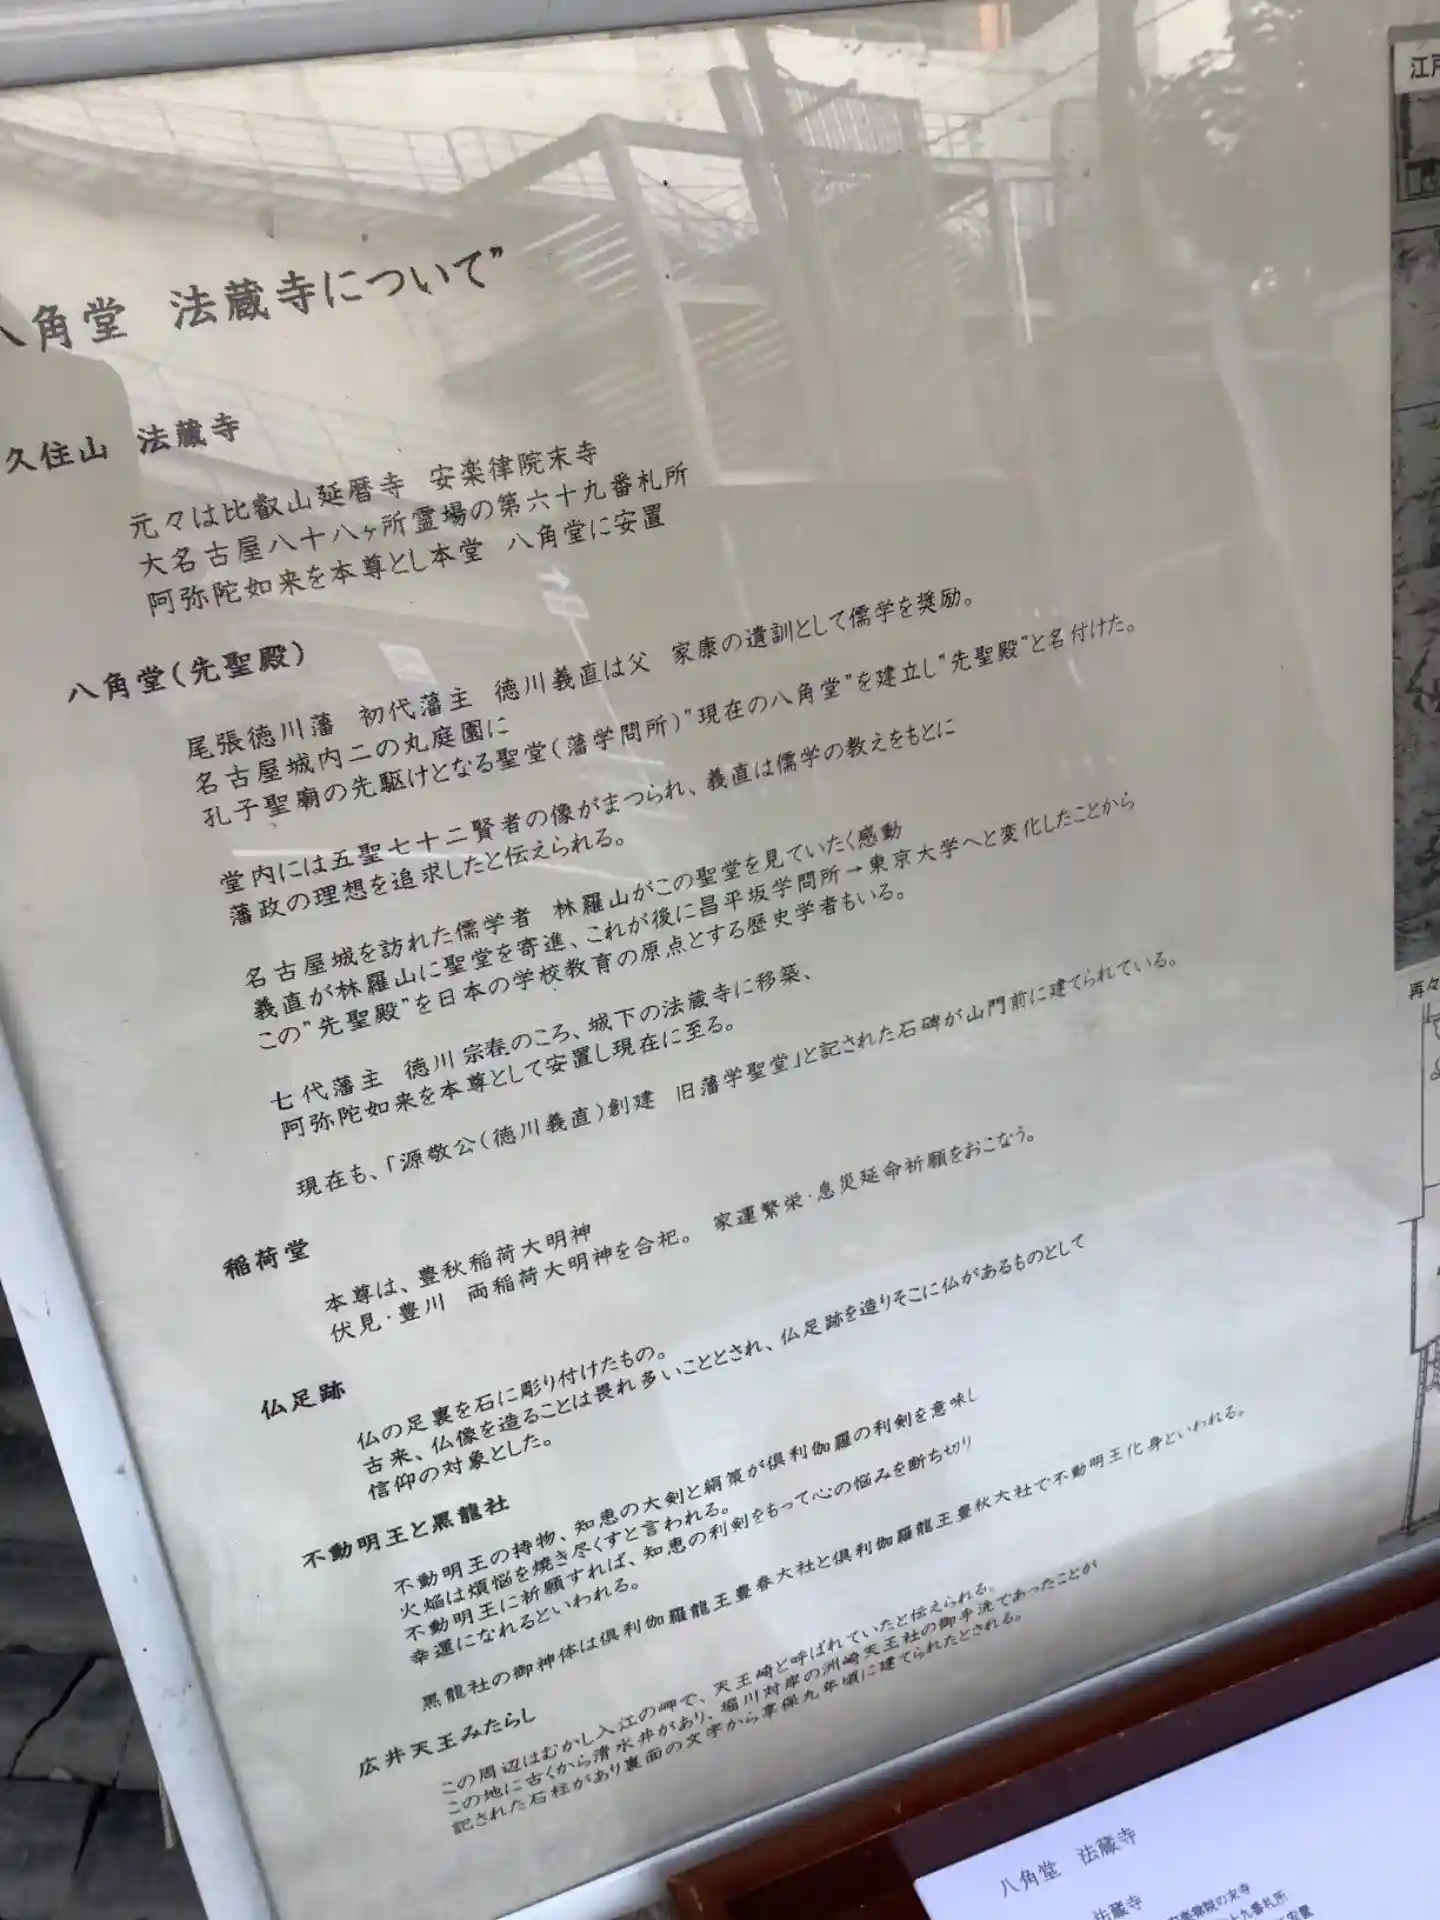 八角堂 法蔵寺について”
久住山 法蔵寺
元々は比叡山延暦寺 安楽律院末寺
大名古屋八十八ヶ所霊場の第六十九番札所
阿弥陀如来を本尊とし本堂 八角堂に安置
八角堂(先聖殿)
尾張徳川藩 初代藩主 徳川義直は父 家康の遺訓として儒学を奨励。
名古屋城内二の丸庭園に
孔子聖廟の先駆けとなる聖堂(藩学問所)”現在の八角堂”を建立し“先聖殿”と名付けた。
堂内には五聖七十二賢者の像がまつられ、義直は儒学の教えをもとに
藩政の理想を追求したと伝えられる。
名古屋城を訪れた儒学者 林羅山がこの聖堂を見ていたく感動
義直が林羅山に聖堂を寄進、これが後に昌平坂学問所→東京大学へと変化したことから
この“先聖殿”を日本の学校教育の原点とする歴史学者もいる。
七代藩主 徳川宗春のころ、城下の法蔵寺に移築、
阿弥陀如来を本尊として安置し現在に至る。
現在も、「源敬公(徳川義直)創建 旧藩学聖堂」と記された石碑が山門前に建てられている。
稲荷堂
本尊は、豊秋稲荷大明神
伏見・豊川 両稲荷大明神を合祀。 家運繁栄・息災延命祈願をおこなう。
仏足跡
仏の足裏を石に彫り付けたもの。
古来、仏像を造ることは畏れ多いこととされ、仏足跡を造りそこに仏があるものとして
信仰の対象とした。
不動明王と黒龍社
不動明王の持物、知恵の大剣と絹策が倶利伽羅の利剣を意味し
火焔は煩悩を焼き尽くすと言われる。
不動明王に祈願すれば、知恵の利剣をもって心の悩みを断ち切り
幸運になれるといわれる。
黒龍社の御神体は倶利伽羅龍王豊春大社と倶利伽羅龍王豊秋大社で不動明王化身といわれる。
広井天王みたらし
この周辺はむかし入江の岬で、天王崎と呼ばれていたと伝えられる。
この地に古くから清水井があり、堀川対岸の洲崎天王社の御手洗であったことが
記された石柱があり裏面の文字から享保九年頃に建てられたとされる。
江戸
再々
八角堂 法蔵寺
法蔵寺
律院の末寺
十九番札所
安置